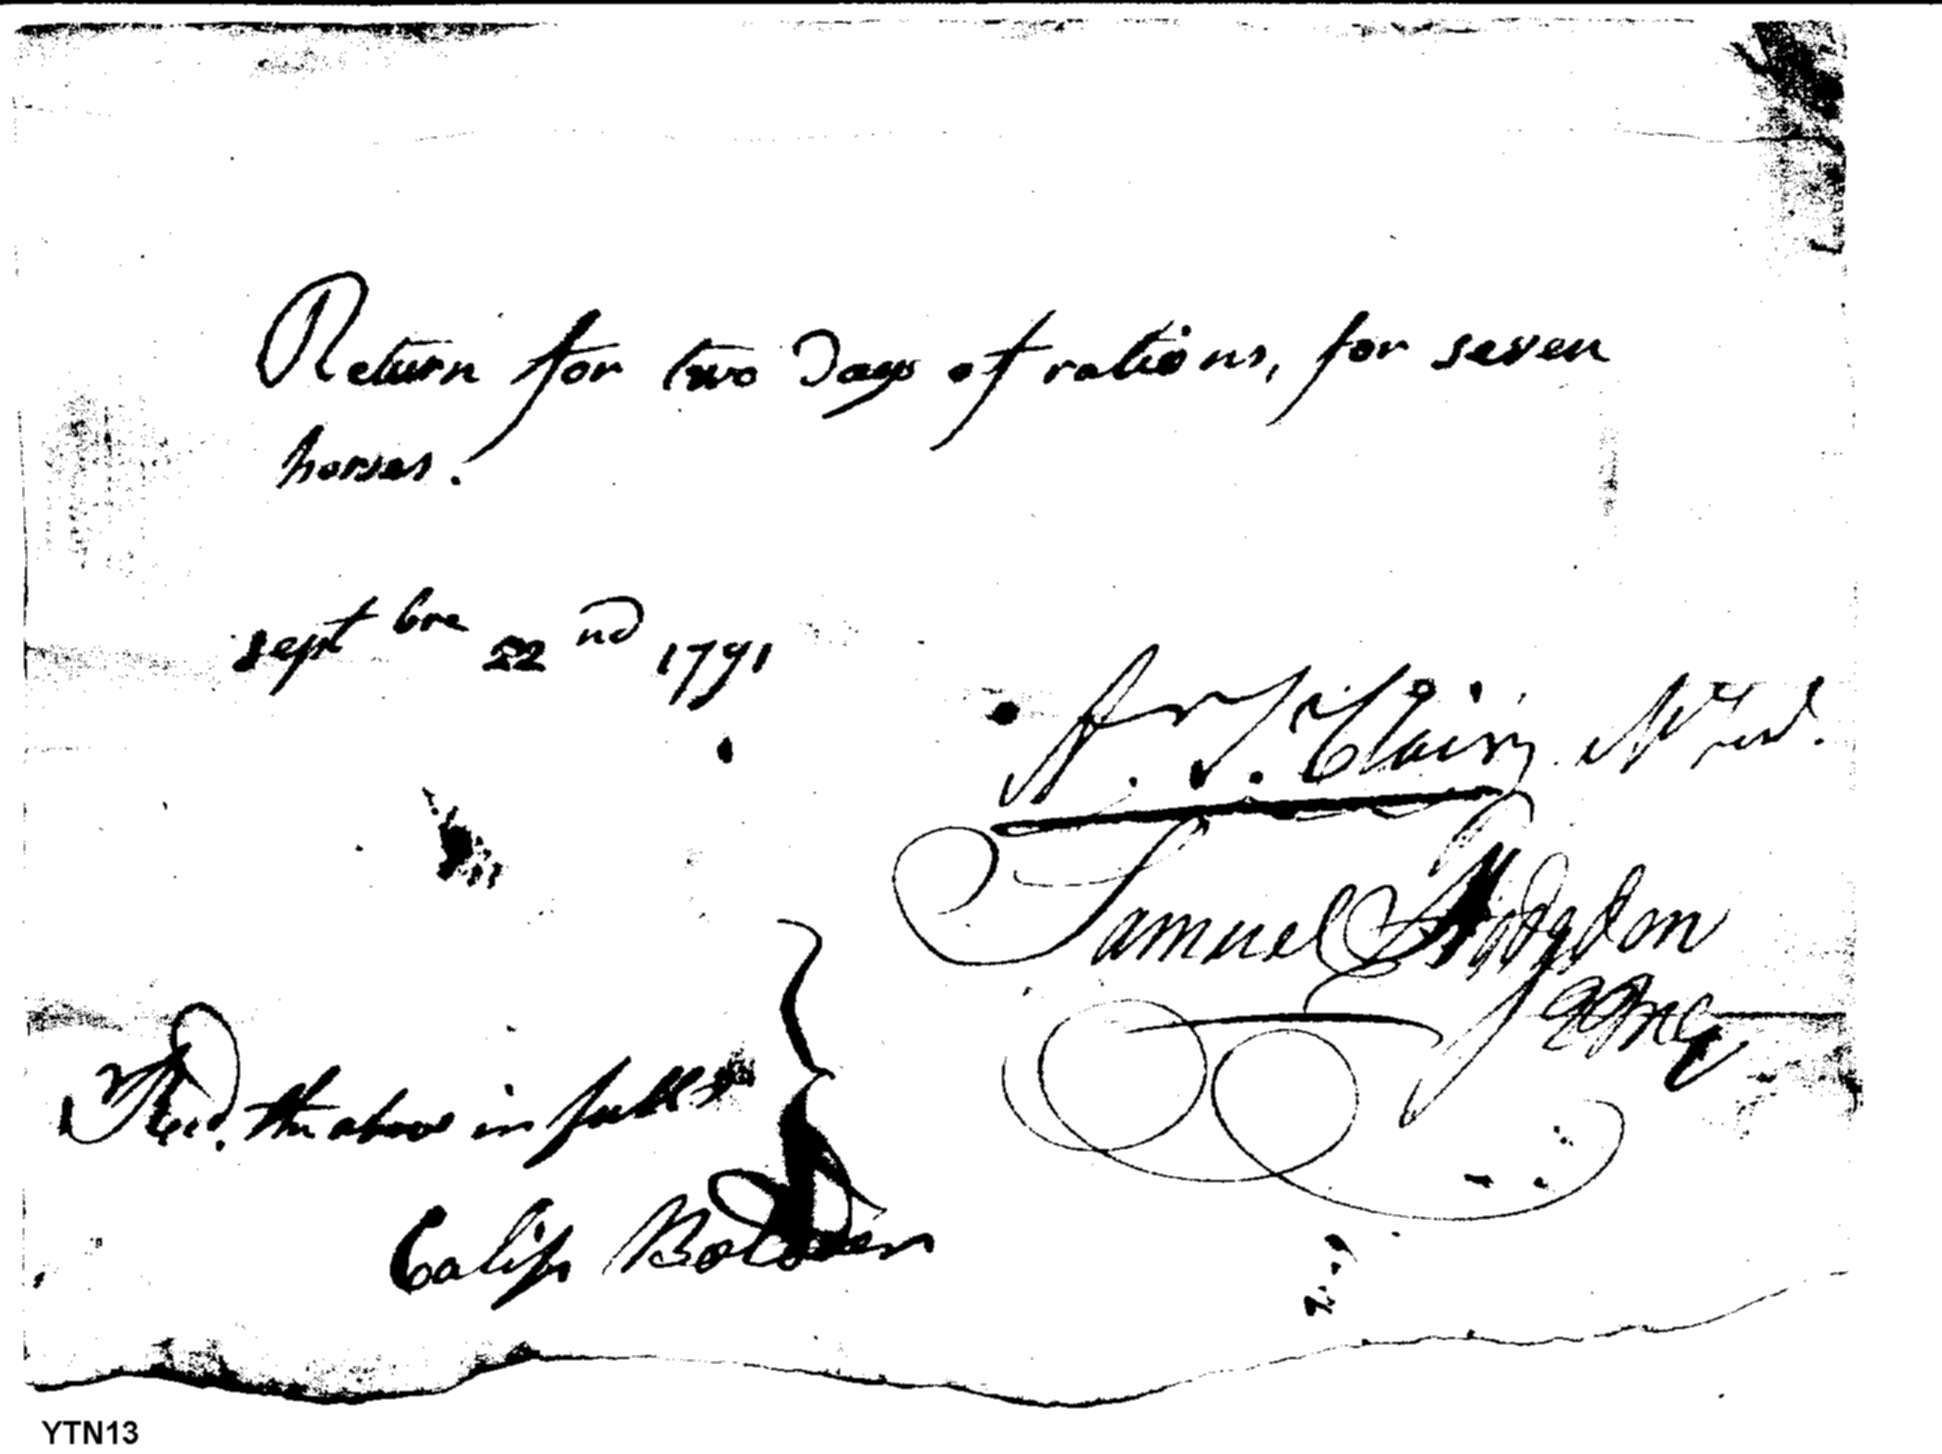 Return for two Days of rations, for seven
horses.
septbre 22nd 1791
Ar. St. Clair
Samuel Hodgdon
QMG
Recd. the above in full
Calip
YTN13